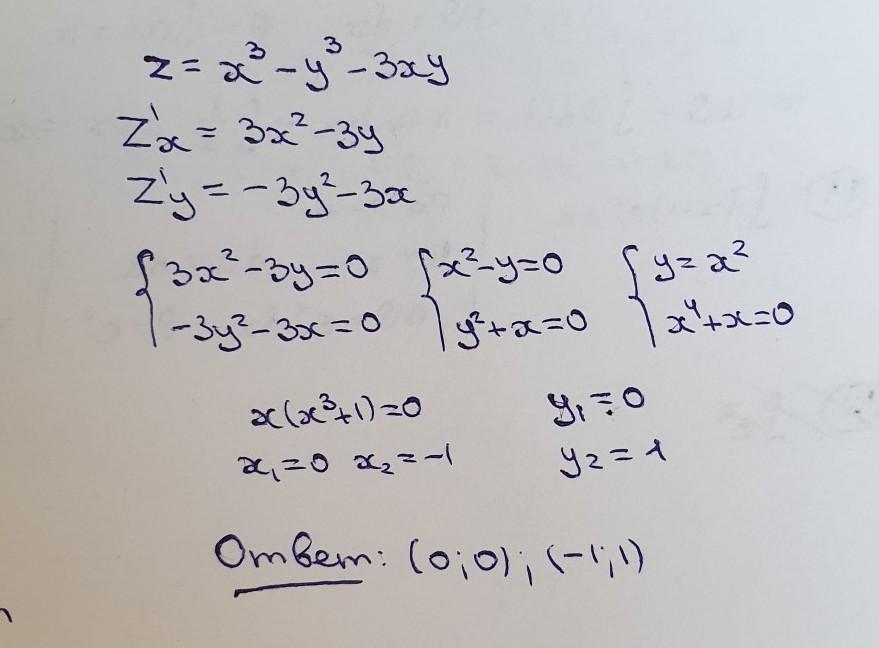 z = x³ - y³ - 3xy
Z'x = 3x² - 3y
Z'y = -3y² - 3x
{ 3x² - 3y = 0 { x² - y = 0 { y = x²
-3y² - 3x = 0 y² + x = 0 x⁴ + x = 0
x(x³+1) = 0 y₁ = 0
x₁ = 0 x₂ = -1 y₂ = 1
Ответ: (0;0); (-1;1)